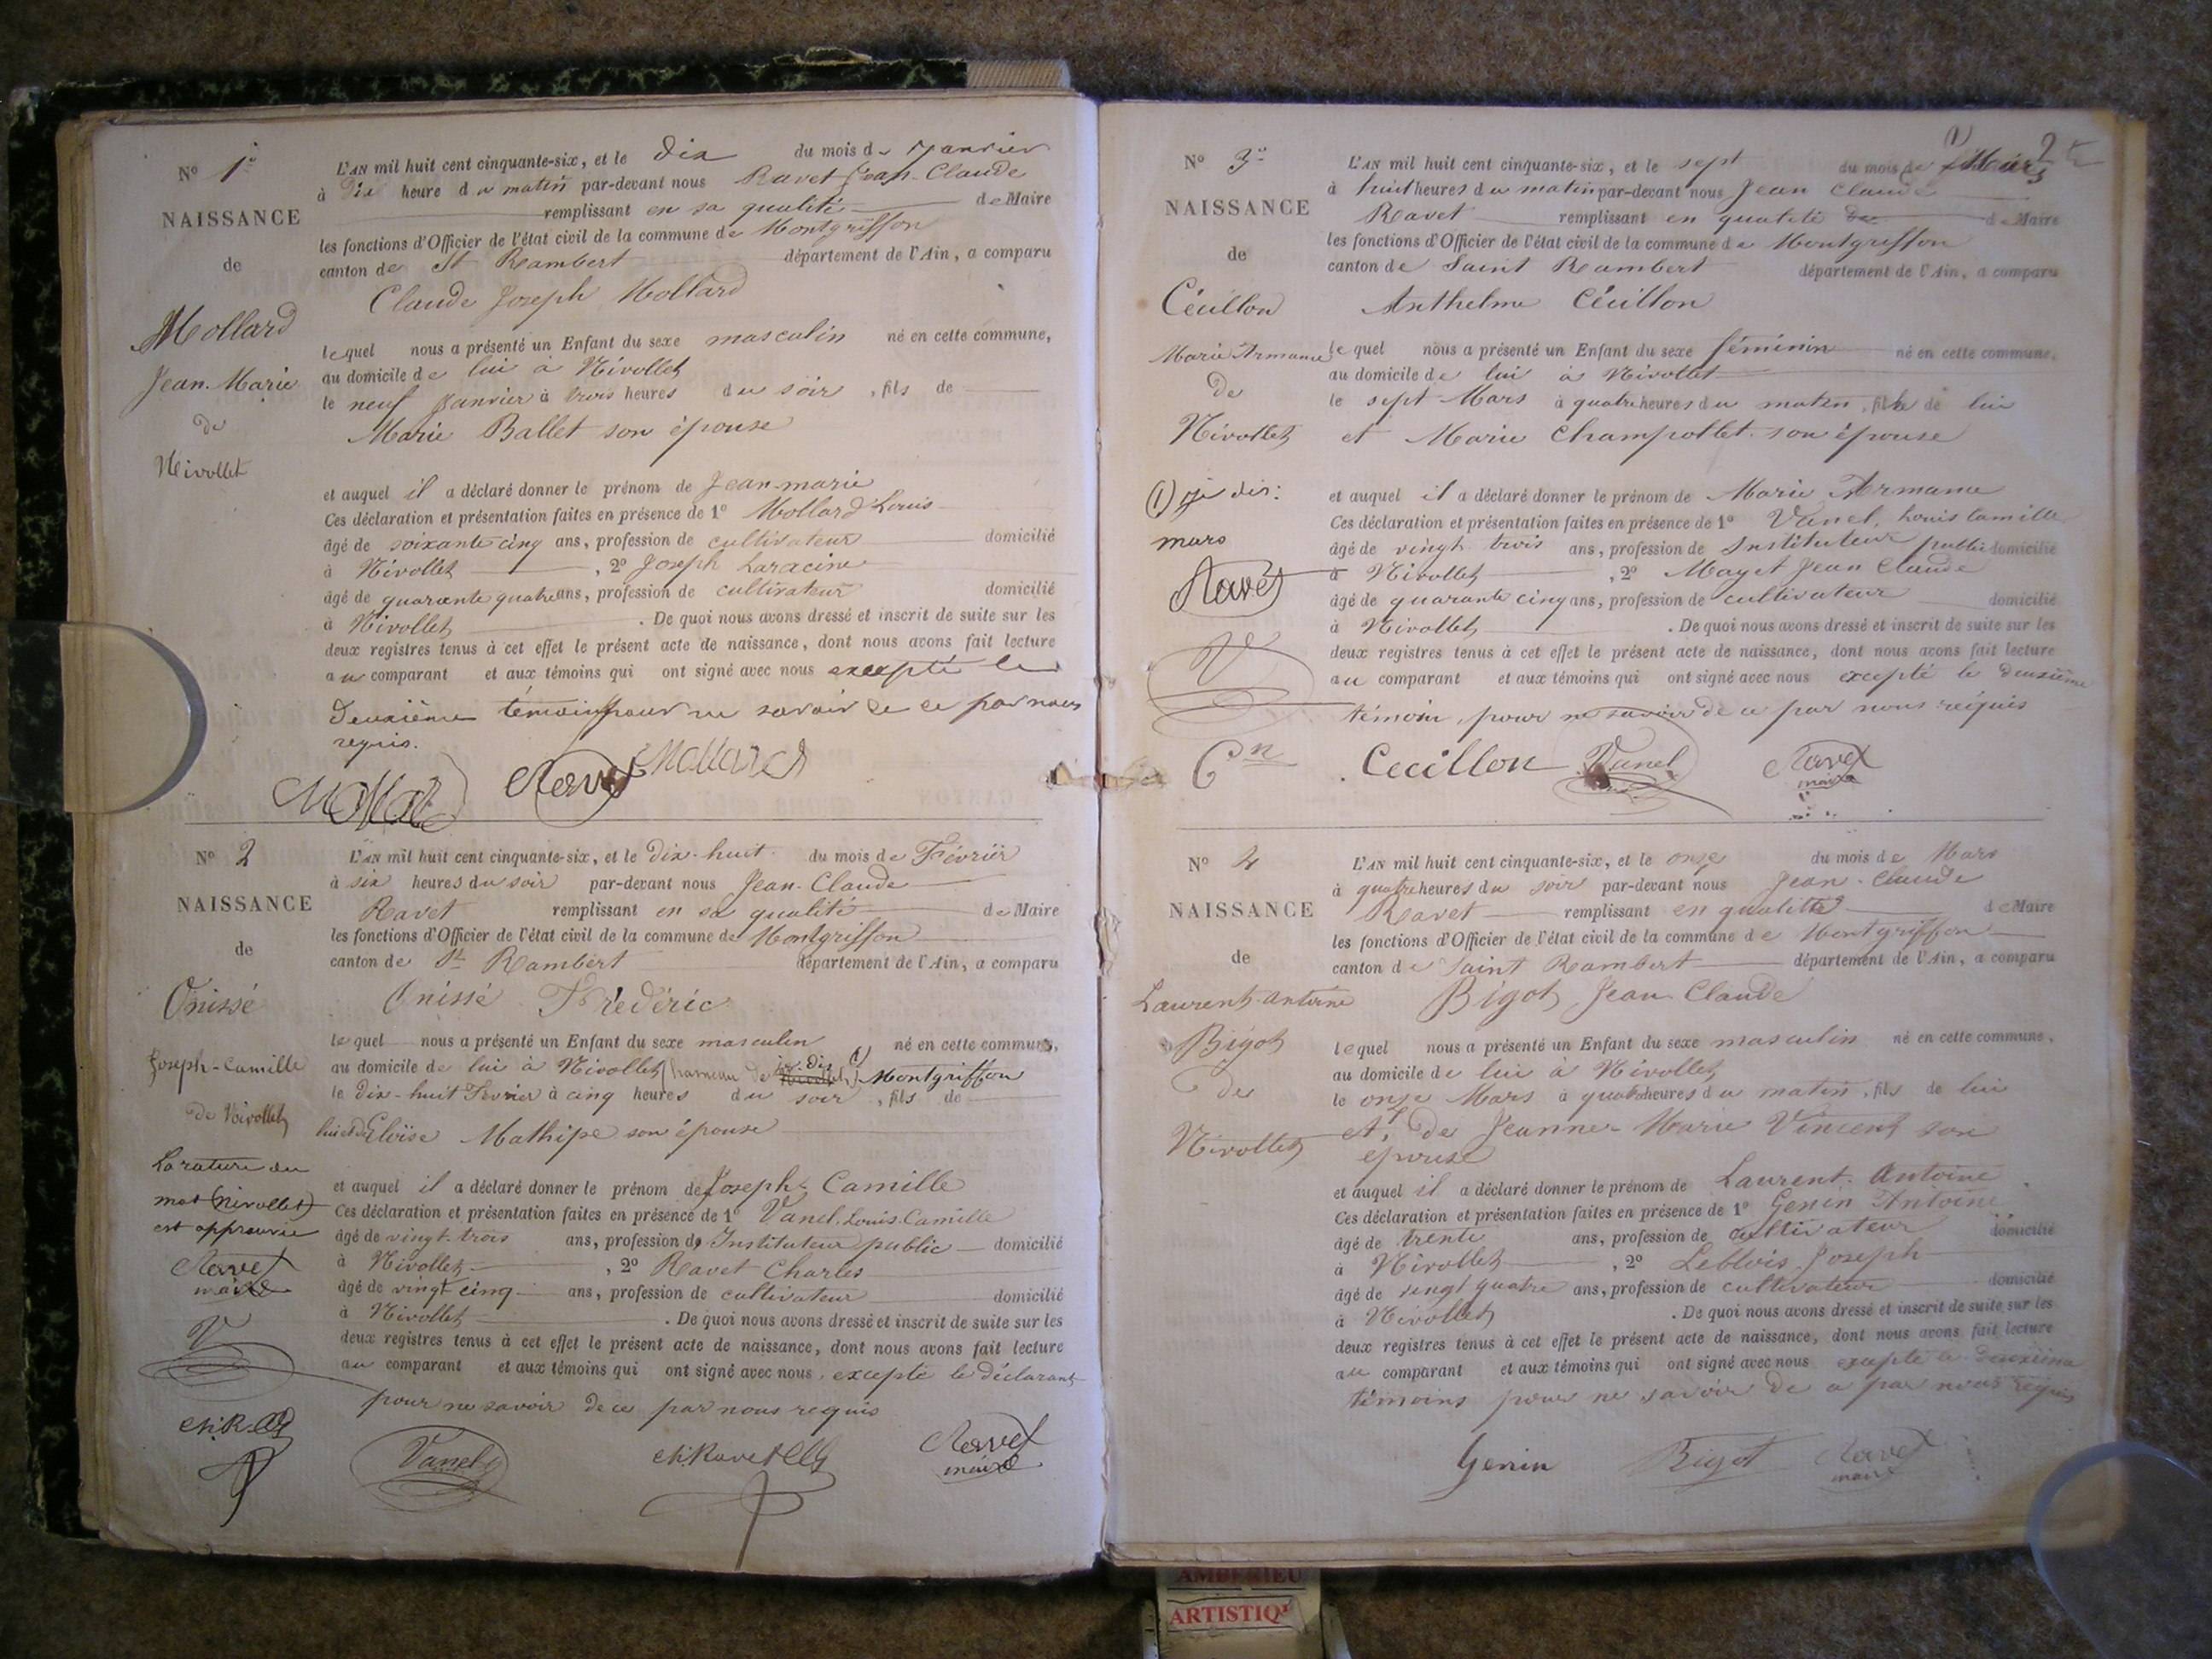 N° 1°
NAISSANCE
de
Mollard
Jean-Marie
de
Nivollet
L'AN mil huit cent cinquante-six, et le dix du mois de Janvier
à dix heure du matin par-devant nous Ravet Jean-Claude
remplissant en sa qualité de Maire
les fonctions d'Officier de l'état civil de la commune de Montgriffon
canton de St Rambert département de l'Ain, a comparu
Claude Joseph Mollard
lequel nous a présenté un Enfant du sexe masculin né en cette commune,
au domicile de lui à Nivollet
le neuf Janvier à trois heures du soir, fils de
Marie Ballet son épouse
et auquel il a déclaré donner le prénom de Jean-marie
Ces déclaration et présentation faites en présence de 1° Mollard Louis
âgé de soixante cinq ans, profession de cultivateur domicilié
à Nivollet, 2° Joseph Laracine
âgé de quarante quatre ans, profession de cultivateur domicilié
à Nivollet. De quoi nous avons dressé et inscrit de suite sur les
deux registres tenus à cet effet le présent acte de naissance, dont nous avons fait lecture
au comparant et aux témoins qui ont signé avec nous excepté le
deuxième témoin pour ne savoir de ce par nous
requis.
Mollard Ravet Mollard
N° 2
NAISSANCE
de
Onissé
Joseph-Camille
de Nivollet
La rature du
mot (nivollet)
est approuvée
Ravet
maire
V
ch. R
L'AN mil huit cent cinquante-six, et le dix-huit du mois de Février
à six heures du soir par-devant nous Jean-Claude
Ravet remplissant en sa qualité de Maire
les fonctions d'Officier de l'état civil de la commune de Montgriffon
canton de St Rambert département de l'Ain, a comparu
Onissé Frédéric
lequel nous a présenté un Enfant du sexe masculin né en cette commune,
au domicile de lui à Nivollet (hameau de Nivollet) Montgriffon
le dix-huit Fevrier à cinq heures du soir, fils de
lui et d'Eloïse Mathipe son épouse
et auquel il a déclaré donner le prénom de Joseph-Camille
Ces déclaration et présentation faites en présence de 1° Vanel Louis Camille
âgé de vingt-trois ans, profession de Instituteur public domicilié
à Nivollet, 2° Ravet Charles
âgé de vingt cinq ans, profession de cultivateur domicilié
à Nivollet. De quoi nous avons dressé et inscrit de suite sur les
deux registres tenus à cet effet le présent acte de naissance, dont nous avons fait lecture
au comparant et aux témoins qui ont signé avec nous, excepté le déclarant
pour ne savoir de ce par nous requis
Vanel ch. Ravet Ravet
maire
N° 3
NAISSANCE
de
Cécillon
Marie Armame
de
Nivollet
(1) je dis:
mars
Ravet
V
Cn
L'AN mil huit cent cinquante-six, et le sept du mois de (1) Mars
à huit heures du matin par-devant nous Jean Claude
Ravet remplissant en qualité de Maire
les fonctions d'Officier de l'état civil de la commune de Montgriffon
canton de Saint Rambert département de l'Ain, a comparu
Anthelme Cécillon
lequel nous a présenté un Enfant du sexe féminin né en cette commune,
au domicile de lui à Nivollet
le sept Mars à quatre heures du matin, fille de lui
et Marie Champollet son épouse
et auquel il a déclaré donner le prénom de Marie Armame
Ces déclaration et présentation faites en présence de 1° Vanel, Louis Camille
âgé de vingt trois ans, profession de Instituteur public domicilié
à Nivollet, 2° Mayet Jean Claude
âgé de quarante cinq ans, profession de cultivateur domicilié
à Nivollet. De quoi nous avons dressé et inscrit de suite sur les
deux registres tenus à cet effet le présent acte de naissance, dont nous avons fait lecture
au comparant et aux témoins qui ont signé avec nous excepté le deuxième
témoin, pour ne savoir de ce par nous requis
Cecillon Vanel Ravet
maire
N° 4
NAISSANCE
de
Laurent-antoine
Bigot
de
Nivollet
L'AN mil huit cent cinquante-six, et le onze du mois de Mars
à quatre heures du soir par-devant nous Jean-Claude
Ravet remplissant en qualitté de Maire
les fonctions d'Officier de l'état civil de la commune de Montgriffon
canton de Saint Rambert département de l'Ain, a comparu
Bigot Jean Claude
lequel nous a présenté un Enfant du sexe masculin né en cette commune,
au domicile de lui à Nivollet
le onze Mars à quatre heures du matin, fils de lui
et de Jeanne-Marie Vincent son
épouse
et auquel il a déclaré donner le prénom de Laurent-Antoine
Ces déclaration et présentation faites en présence de 1° Genin Antoine
âgé de trente ans, profession de cultivateur domicilié
à Nivollet, 2° Leblois Joseph
âgé de vingt quatre ans, profession de cultivateur domicilié
à Nivollet. De quoi nous avons dressé et inscrit de suite sur les
deux registres tenus à cet effet le présent acte de naissance, dont nous avons fait lecture
au comparant et aux témoins qui ont signé avec nous excepté le deuxième
témoins pour ne savoir de ce par nous requis
Genin Bigot Ravet
maire
AMBERIEU
ARTISTIQ